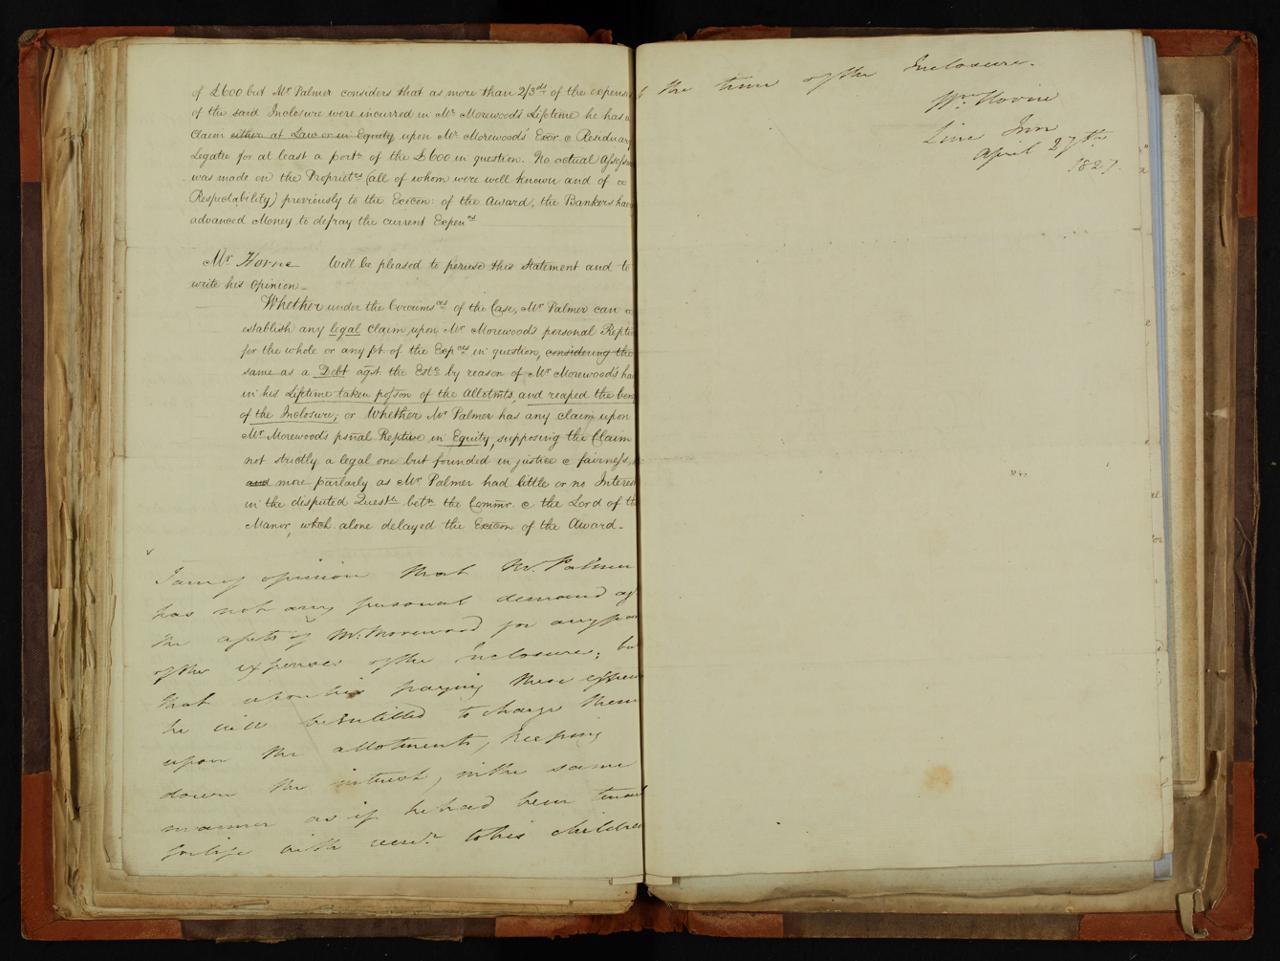 of £600 but Mr Palmer considers that as more than 2/3ds of the expens
of the said Inclosure were incurred in Mr Morewood's Lifetime he has a
Claim either at Law or in Equity upon Mr Morewoods' Exor & Residuary
Legatee for at least a portn of the £600 in question. No actual Assessm
was made on the Propriets (all of whom were well known and of
Respectability) previously to the Execon: of the Award, the Bankers hav
advanced Money to defray the current Expenes
Mr Horne Will be pleased to peruse this Statement and to
write his Opinion_
Whether under the Circumses of the Case, Mr Palmer can
establish any legal Claim, upon Mr Morewood's personal Reptive
for the whole or any pt of the Expces in question, considering the
same as a Debt agst the Este by reason of Mr Morewood's ha
in his Lifetime taken posson of the Allotmts, and reaped the ben
of the Inclosure; or Whether Mr Palmer has any claim upon
Mr Morewood's psnal Reptive in Equity, supposing the Claim
not strictly a legal one but founded in justice & fairness,
and more partarly as Mr Palmer had little or no Interes
in the disputed Questn betn the Commr & the Lord of th
Manor, which alone delayed the Execon of the Award_
I am of opinion that Mr. Palmer
has not any personal demand ag
the assets of Mr. Morewood for any par
of the expenses of the Inclosure; bu
that upon his paying these expen
he will be entitled to charge them
upon the allotments, keeping
down the interest, in the same
manner as if he had been tenant
for life with remr. to his children
the time of the Inclosure.
Wm. Horne
Linc Inn
April 27th
1827.